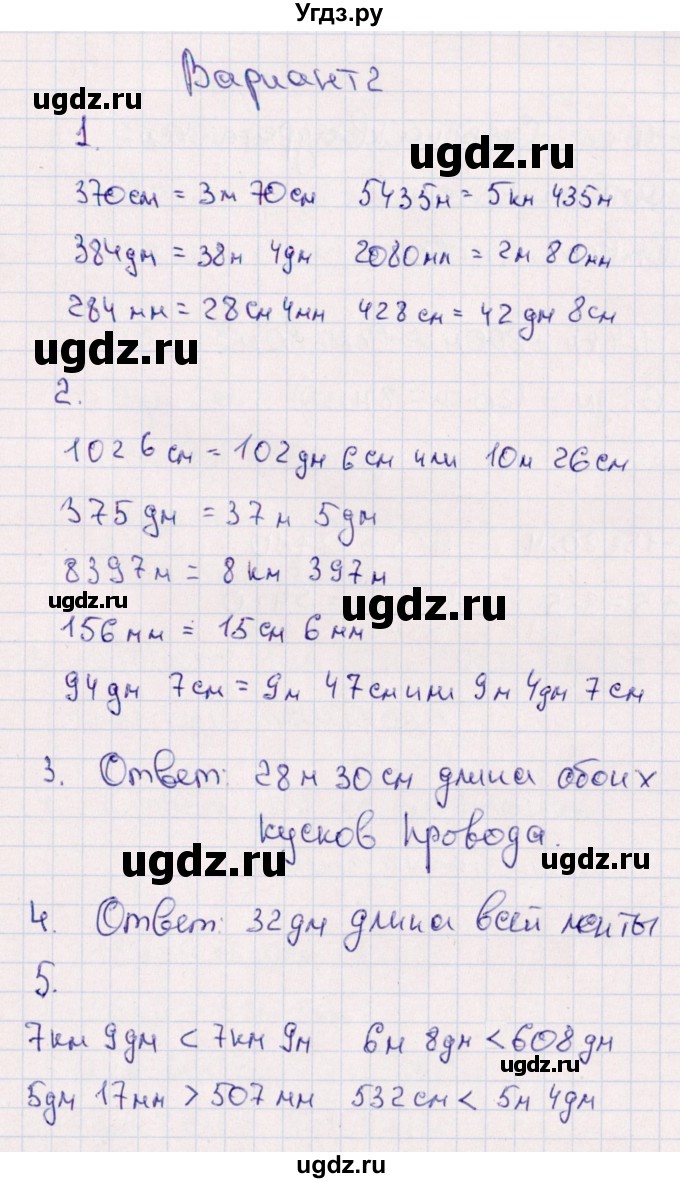 Угдз.ру
Вариант 2
ugdz.ru
1.
ugdz.ru
370см = 3м 70см 5435м = 5км 435м
384дм = 38м 4дм 2080мм = 2м 80мм
284мм = 28см 4мм 428см = 42дм 8см
ugdz.ru
2.
1026см = 102дм 6см или 10м 26см
375дм = 37м 5дм
8397м = 8км 397м
ugdz.ru ugdz.ru
156мм = 15см 6мм
94дм 7см = 9м 47см или 9м 4дм 7см
3. Ответ: 28м 30см длина обоих
кусков провода.
ugdz.ru ugdz.ru
4. Ответ: 32дм длина всей ленты
5.
7км 9дм < 7км 9м 6м 8дм < 608дм
ugdz.ru
5дм 17мм > 507мм 532см < 5м 4дм
ugdz.ru